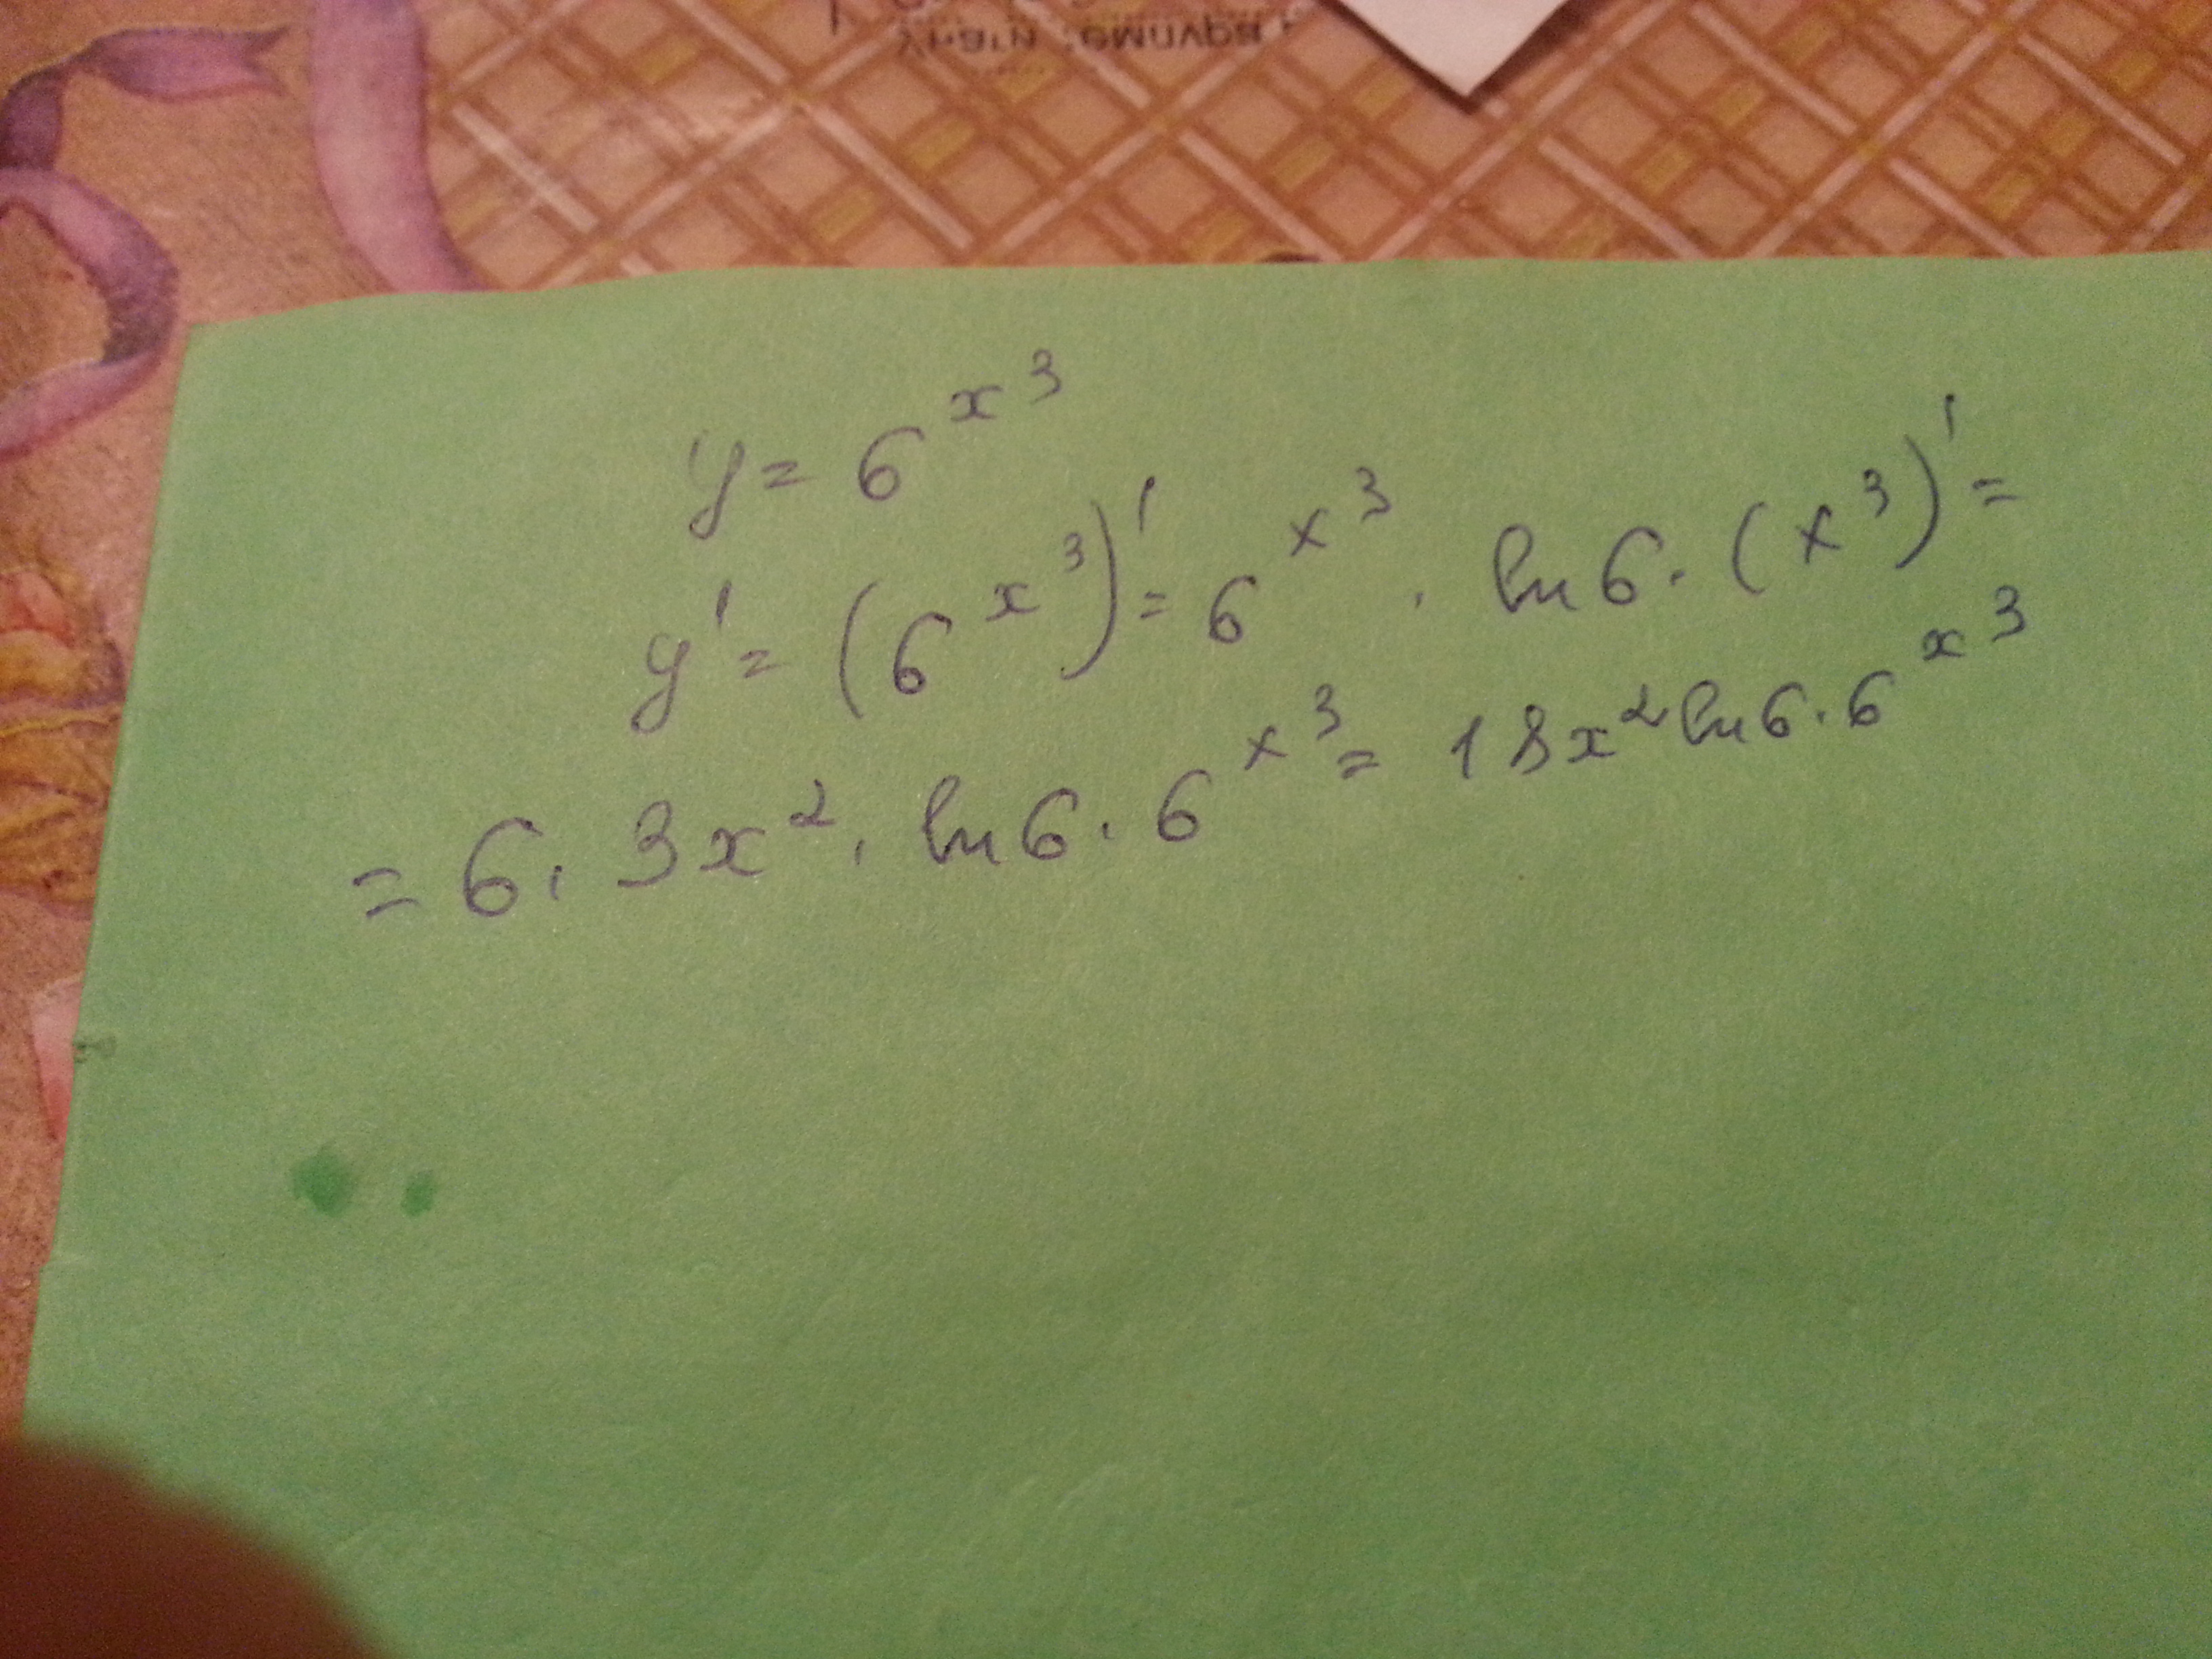 y = 6^{x^3}
y' = (6^{x^3})' = 6^{x^3} · ln 6 · (x^3)' =
= 6 · 3x^2 · ln 6 · 6^{x^3} = 18x^2 ln 6 · 6^{x^3}